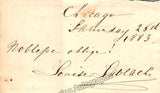 Chicago
Saturday 26th
1883
Noblesse oblige!
Louise Lablache